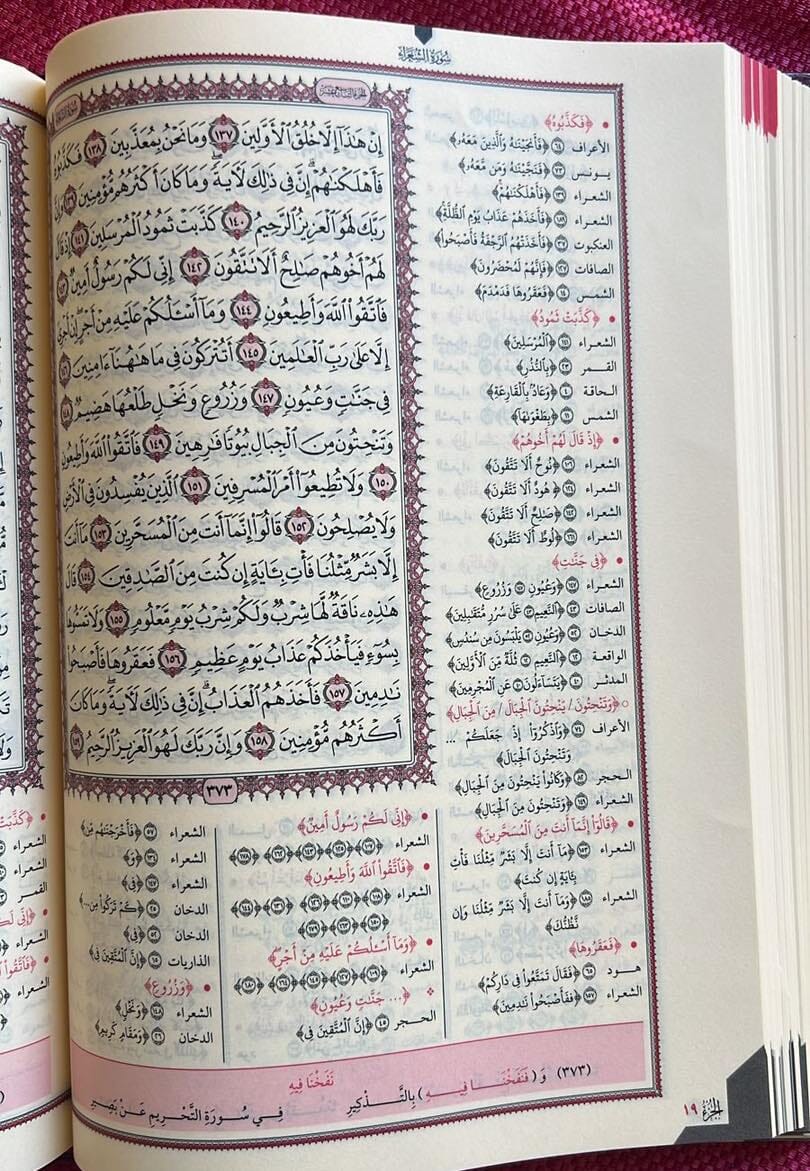 سُورَةُ الشُّعَرَاءِ
إِنْ هَٰذَآ إِلَّا خُلُقُ ٱلْأَوَّلِينَ ١٣٧ وَمَا نَحْنُ بِمُعَذَّبِينَ ١٣٨ فَكَذَّبُوهُ
فَأَهْلَكْنَٰهُمْ إِنَّ فِى ذَٰلِكَ لَءَايَةً وَمَا كَانَ أَكْثَرُهُم مُّؤْمِنِينَ ١٣٩ وَإِنَّ
رَبَّكَ لَهُوَ ٱلْعَزِيزُ ٱلرَّحِيمُ ١٤٠ كَذَّبَتْ ثَمُودُ ٱلْمُرْسَلِينَ ١٤١ إِذْ قَالَ
لَهُمْ أَخُوهُمْ صَٰلِحٌ أَلَا تَتَّقُونَ ١٤٢ إِنِّى لَكُمْ رَسُولٌ أَمِينٌ ١٤٣
فَٱتَّقُوا۟ ٱللَّهَ وَأَطِيعُونِ ١٤٤ وَمَآ أَسْـَٔلُكُمْ عَلَيْهِ مِنْ أَجْرٍ إِنْ أَجْرِىَ
إِلَّا عَلَىٰ رَبِّ ٱلْعَٰلَمِينَ ١٤٥ أَتُتْرَكُونَ فِى مَا هَٰهُنَآ ءَامِنِينَ ١٤٦
فِى جَنَّٰتٍ وَعُيُونٍ ١٤٧ وَزُرُوعٍ وَنَخْلٍ طَلْعُهَا هَضِيمٌ ١٤٨
وَتَنْحِتُونَ مِنَ ٱلْجِبَالِ بُيُوتًا فَٰرِهِينَ ١٤٩ فَٱتَّقُوا۟ ٱللَّهَ وَأَطِيعُونِ
١٥٠ وَلَا تُطِيعُوٓا۟ أَمْرَ ٱلْمُسْرِفِينَ ١٥١ ٱلَّذِينَ يُفْسِدُونَ فِى ٱلْأَرْضِ
وَلَا يُصْلِحُونَ ١٥٢ قَالُوٓا۟ إِنَّمَآ أَنتَ مِنَ ٱلْمُسَحَّرِينَ ١٥٣ مَآ أَنتَ
إِلَّا بَشَرٌ مِّثْلُنَا فَأْتِ بِـَٔايَةٍ إِن كُنتَ مِنَ ٱلصَّٰدِقِينَ ١٥٤ قَالَ
هَٰذِهِۦ نَاقَةٌ لَّهَا شِرْبٌ وَلَكُمْ شِرْبُ يَوْمٍ مَّعْلُومٍ ١٥٥ وَلَا تَمَسُّوهَا
بِسُوٓءٍ فَيَأْخُذَكُمْ عَذَابُ يَوْمٍ عَظِيمٍ ١٥٦ فَعَقَرُوهَا فَأَصْبَحُوا۟
نَٰدِمِينَ ١٥٧ فَأَخَذَهُمُ ٱلْعَذَابُ إِنَّ فِى ذَٰلِكَ لَءَايَةً وَمَا كَانَ
أَكْثَرُهُم مُّؤْمِنِينَ ١٥٨ وَإِنَّ رَبَّكَ لَهُوَ ٱلْعَزِيزُ ٱلرَّحِيمُ ١٥٩
٣٧٣
• ﴿فَكَذَّبُوهُ﴾
الأعراف ٦٤ ﴿فَأَنجَيْنَٰهُ وَٱلَّذِينَ مَعَهُۥ﴾
يونس ٧٣ ﴿فَنَجَّيْنَٰهُ وَمَن مَّعَهُۥ﴾
الشعراء ١٣٩ ﴿فَأَهْلَكْنَٰهُمْ﴾
الشعراء ١٨٩ ﴿فَأَخَذَهُمْ عَذَابُ يَوْمِ ٱلظُّلَّةِ﴾
العنكبوت ٣٧ ﴿فَأَخَذَتْهُمُ ٱلرَّجْفَةُ فَأَصْبَحُوا۟﴾
الصافات ١٢٧ ﴿فَإِنَّهُمْ لَمُحْضَرُونَ﴾
الشمس ١٤ ﴿فَعَقَرُوهَا فَدَمْدَمَ﴾
• ﴿كَذَّبَتْ ثَمُودُ﴾
الشعراء ١٤١ ﴿ٱلْمُرْسَلِينَ﴾
القمر ٢٣ ﴿بِٱلنُّذُرِ﴾
الحاقة ٤ ﴿وَعَادٌۢ بِٱلْقَارِعَةِ﴾
الشمس ١١ ﴿بِطَغْوَىٰهَآ﴾
• ﴿إِذْ قَالَ لَهُمْ أَخُوهُمْ﴾
الشعراء ١٠٦ ﴿نُوحٌ أَلَا تَتَّقُونَ﴾
الشعراء ١٢٤ ﴿هُودٌ أَلَا تَتَّقُونَ﴾
الشعراء ١٤٢ ﴿صَٰلِحٌ أَلَا تَتَّقُونَ﴾
الشعراء ١٦١ ﴿لُوطٌ أَلَا تَتَّقُونَ﴾
• ﴿فِى جَنَّٰتٍ﴾
الشعراء ١٤٧ ﴿وَعُيُونٍ ١٤٧ وَزُرُوعٍ﴾
الصافات ٤٣ ﴿ٱلنَّعِيمِ ٤٣ عَلَىٰ سُرُرٍ مُّتَقَٰبِلِينَ﴾
الدخان ٥٢ ﴿وَعُيُونٍ ٥٢ يَلْبَسُونَ مِن سُندُسٍ﴾
الواقعة ١٢ ﴿ٱلنَّعِيمِ ١٢ ثُلَّةٌ مِّنَ ٱلْأَوَّلِينَ﴾
المدثر ٤٠ ﴿يَتَسَآءَلُونَ ٤٠ عَنِ ٱلْمُجْرِمِينَ﴾
○ ﴿وَتَنْحِتُونَ / يَنْحِتُونَ ٱلْجِبَالَ / مِنَ ٱلْجِبَالِ﴾
الأعراف ٧٤ ﴿وَٱذْكُرُوٓا۟ إِذْ جَعَلَكُمْ ...
وَتَنْحِتُونَ ٱلْجِبَالَ﴾
الحجر ٨٢ ﴿وَكَانُوا۟ يَنْحِتُونَ مِنَ ٱلْجِبَالِ﴾
الشعراء ١٤٩ ﴿وَتَنْحِتُونَ مِنَ ٱلْجِبَالِ﴾
• ﴿قَالُوٓا۟ إِنَّمَآ أَنتَ مِنَ ٱلْمُسَحَّرِينَ﴾
الشعراء ١٥٣ ﴿مَآ أَنتَ إِلَّا بَشَرٌ مِّثْلُنَا فَأْتِ
بِـَٔايَةٍ إِن كُنتَ﴾
الشعراء ١٨٥ ﴿وَمَآ أَنتَ إِلَّا بَشَرٌ مِّثْلُنَا وَإِن
نَّظُنُّكَ﴾
• ﴿فَعَقَرُوهَا﴾
هود ٦٥ ﴿فَقَالَ تَمَتَّعُوا۟ فِى دَارِكُمْ﴾
الشعراء ١٥٧ ﴿فَأَصْبَحُوا۟ نَٰدِمِينَ﴾
• ﴿إِنِّى لَكُمْ رَسُولٌ أَمِينٌ﴾
الشعراء ﴿١٠٧﴾ ﴿١٢٥﴾ ﴿١٤٣﴾ ﴿١٦٢﴾ ﴿١٧٨﴾
• ﴿فَٱتَّقُوا۟ ٱللَّهَ وَأَطِيعُونِ﴾
الشعراء ﴿١٠٨﴾ ﴿١١٠﴾ ﴿١٢٦﴾ ﴿١٣١﴾ ﴿١٤٤﴾
﴿١٥٠﴾ ﴿١٦٣﴾ ﴿١٧٩﴾
• ﴿وَمَآ أَسْـَٔلُكُمْ عَلَيْهِ مِنْ أَجْرٍ﴾
الشعراء ﴿١٠٩﴾ ﴿١٢٧﴾ ﴿١٤٥﴾ ﴿١٦٤﴾ ﴿١٨٠﴾
﴿... جَنَّٰتٍ وَعُيُونٍ﴾
الحجر ٤٥ ﴿إِنَّ ٱلْمُتَّقِينَ فِى﴾
الشعراء ٥٧ ﴿فَأَخْرَجْنَٰهُم مِّن﴾
الشعراء ١٣٤ ﴿وَ﴾
الشعراء ١٤٧ ﴿فِى﴾
الدخان ٢٥ ﴿كَمْ تَرَكُوا۟ مِن...﴾
الدخان ٥٢ ﴿فِى﴾
الذاريات ١٥ ﴿إِنَّ ٱلْمُتَّقِينَ فِى﴾
• ﴿وَزُرُوعٍ﴾
الشعراء ١٤٨ ﴿وَنَخْلٍ﴾
الدخان ٢٦ ﴿وَمَقَامٍ كَرِيمٍ﴾
(٣٧٣) وَ(فَنَفَخْنَا فِيهِ) بِالتَّذْكِيرِ نَفَخْنَا فِيهِ فِي سُورَةِ التَّحْرِيمِ عَنْ بَصِيرِ
الجُزْءُ ١٩